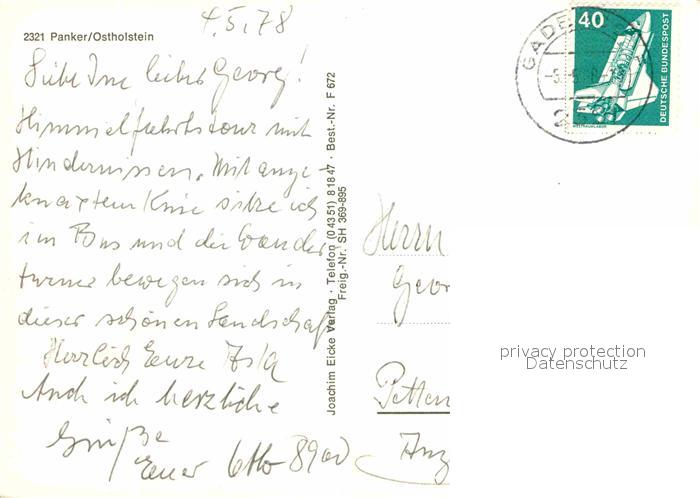 4.5.78
2321 Panker/Ostholstein
Liebe Ine lieber Georg!
Himmelfahrtstour mit
Hindernissen. Mit ange-
knaxtem Knie sitze ich
im Bus und die Wander
turner bewegen sich in
dieser schönen Landschaft
Herzlich Eure
Auch ich herzliche
Grüße
Euer Otto
Joachim Eicke Verlag · Telefon (0 43 51) 8 18 47 · Best.-Nr. F 672
Freig.-Nr. SH 369-895
GADE
40
DEUTSCHE BUNDESPOST
Herrn
Geor
Petten
privacy protection
Datenschutz